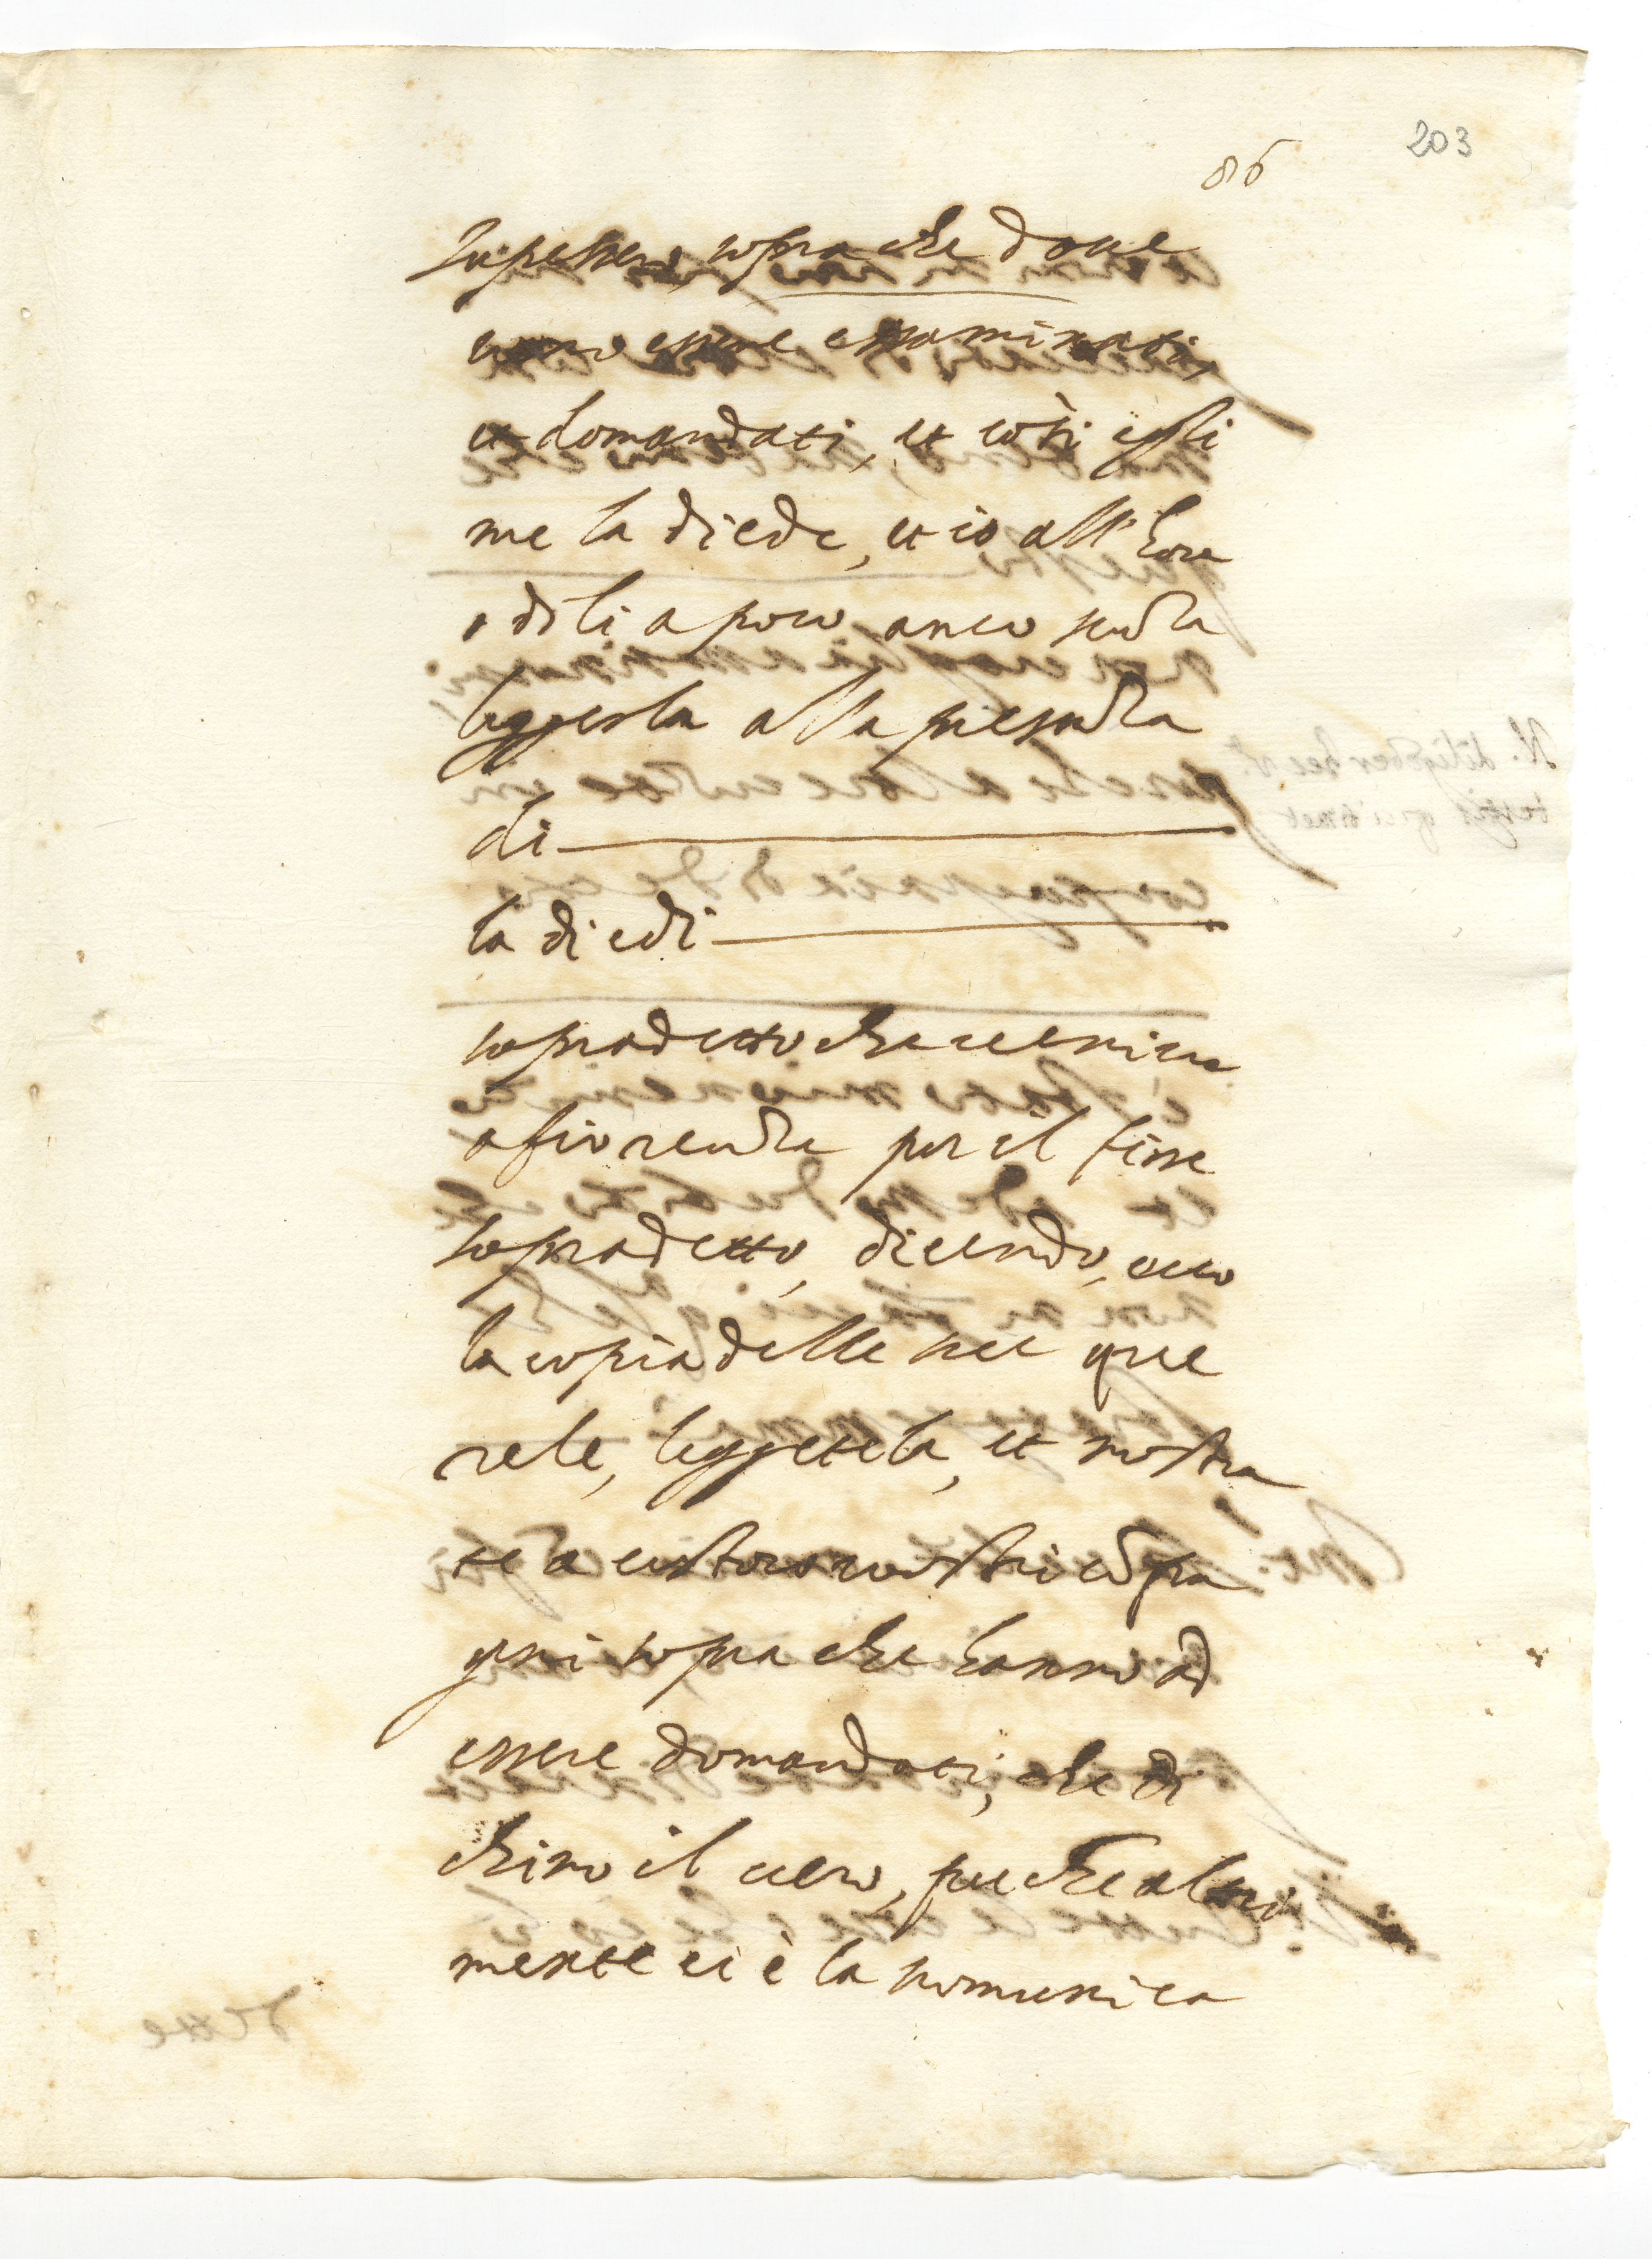 203
86
sapessero, sopra che doue
uano essere essaminati,
et domandati, et così essi
me la diede, et io all'hora
ò di li a poco anco senza
leggerla alla presenza
di
la diedi
sopradetto che ueniua
a fiorenza per il fine
sopradetto, dicendo, ecco
la copia delle sei que
rele, leggetela, et mostra
te a cestoro uostri cōpa
gni sopra che hanno ad
essere domandati, che di
chino il uero, perche altri
mente ci è la scomunica